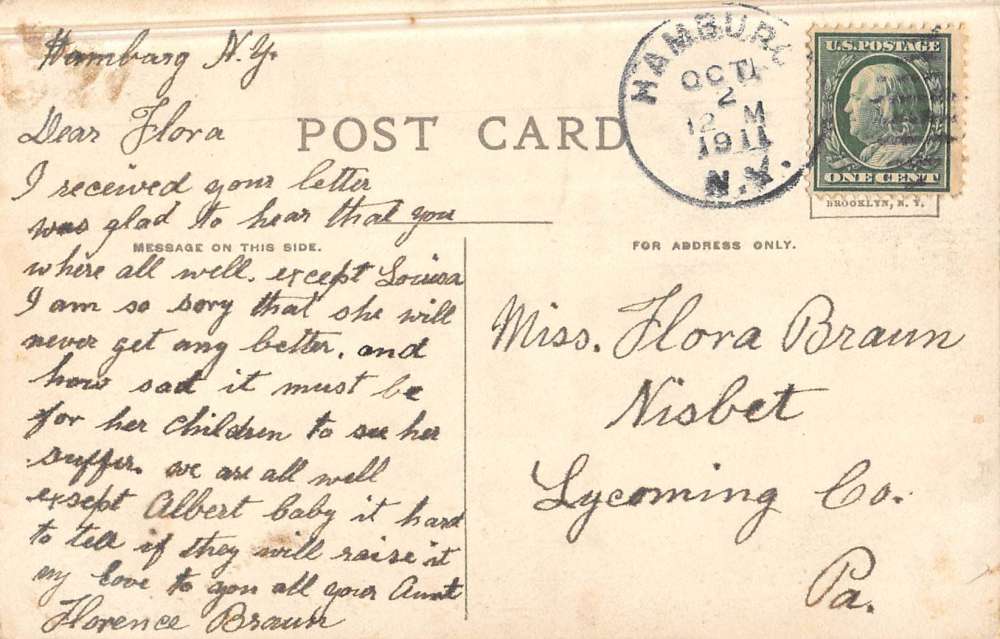 Hamburg N.Y.
Dear Flora
I received your letter
was glad to hear that you
where all well. except Louisa
I am so sory that she will
never get any better. and
how sad it must be
for her children to see her
suffer. we are all well
exsept Albert baby it hard
to tell if they will raise it
my love to you all your Aunt
Florence Braun
POST CARD
MESSAGE ON THIS SIDE.
HAMBURG
OCT
2
12 M
1911
N.Y.
U.S. POSTAGE
ONE CENT
BROOKLYN, N. Y.
FOR ADDRESS ONLY.
Miss. Flora Braun
Nisbet
Lycoming Co.
Pa.